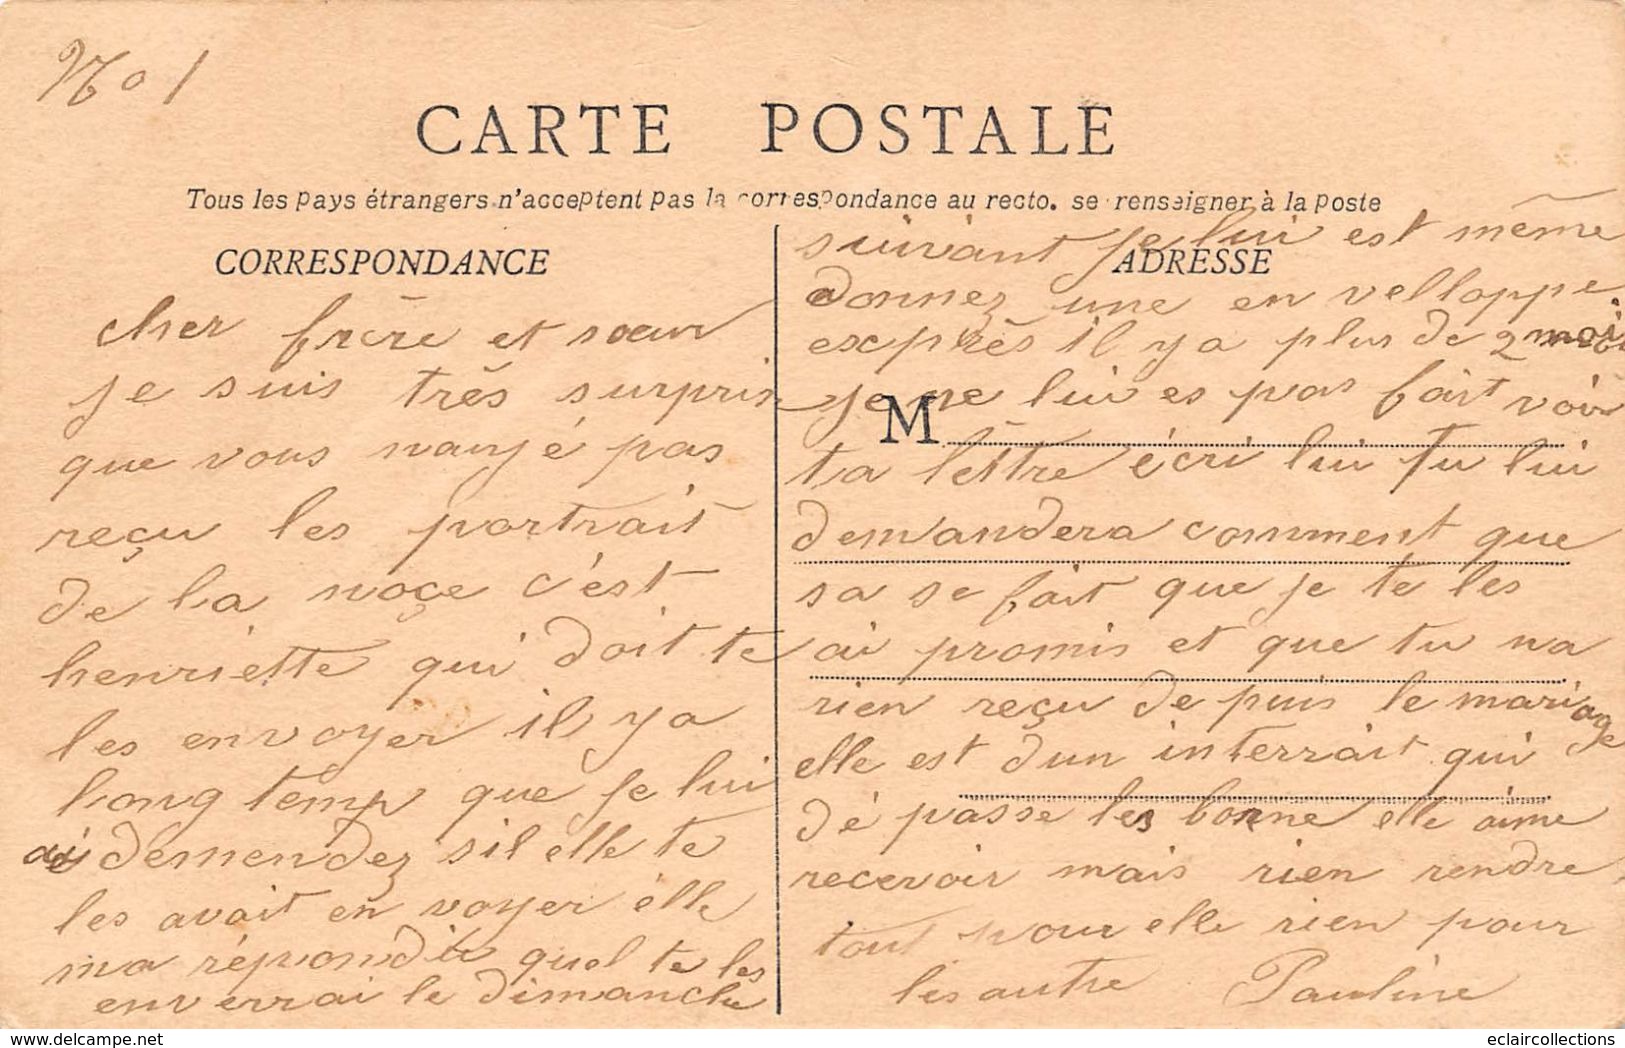 No 1
CARTE POSTALE
Tous les pays étrangers n'acceptent pas la correspondance au recto. se renseigner à la poste
CORRESPONDANCE
cher frère et sœur
je suis très surpris
que vous nayé pas
reçu les portrait
de la noçe c'est
henriette qui doit te
les envoyer il y a
long temp que je lui
ai demendez sil elle te
les avait en voyer elle
ma répondu quel te les
enverrai le dimanche
ADRESSE
M
suivant je lui est même
donnez une en velloppe
exprès il y a plus de 2 mois
je ne lui es pas fait voir
ta lettre écri lui tu lui
demandera comment que
sa se fait que je te les
ai promis et que tu na
rien reçu de puis le mariage
elle est dun interrait qui
dé passe les borne elle aime
recevoir mais rien rendre
tout pour elle rien pour
les autre Pauline
www.delcampe.net
eclaircollections